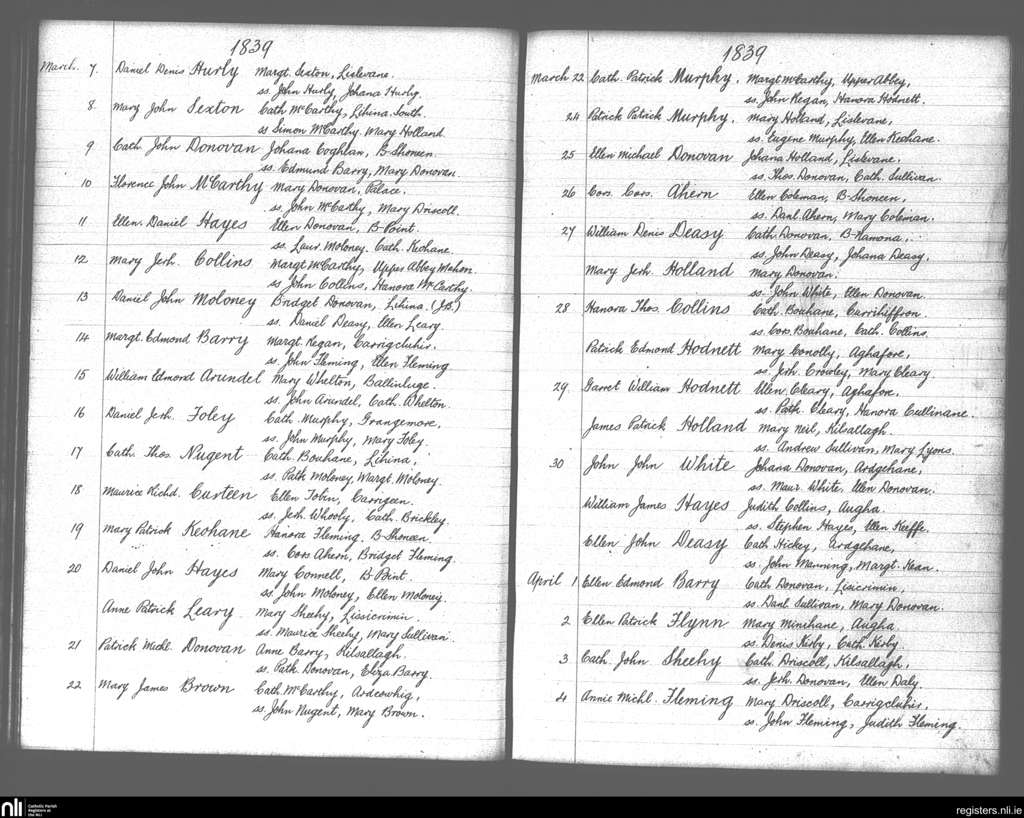 1839
March. 7. Daniel Denis Hurly Margt. Sexton, Lislevane.
ss. John Hurly, Johana Hurly.
8. Mary John Sexton Cath McCarthy, Lihina South.
ss Simon McCarthy. Mary Holland
9 Cath John Donovan Johana Coghlan, B-Shoneen.
ss. Edmund Barry, Mary Donovan.
10 Florence John McCarthy Mary Donovan, Palace.
ss. John McCarthy, Mary Driscoll.
11 Ellen Daniel Hayes Ellen Donovan, B-Point.
ss. Laur. Moloney. Cath. Keohane.
12 Mary Jerh. Collins Margt McCarthy, Upper Abbey Mahon.
ss John Collins, Hanora McCarthy.
13 Daniel John Moloney Bridget Donovan, Lihina. (J.B.)
ss. Daniel Deasy, Ellen Leary.
14 Margt. Edmond Barry Margt. Regan, Carrigcluhir.
ss. John Fleming, Ellen Fleming
15 William Edmond Arundel Mary Whelton, Ballinluge.
ss. John Arundel, Cath. Whelton.
16 Daniel Jerh. Foley Cath. Murphy, Grangemore,
ss. John Murphy, Mary Foley.
17 Cath. Thos. Nugent Cath. Bouhane, Lihina,
ss. Patk Moloney, Margt. Moloney.
18 Maurice Richd. Custeen Ellen Tobin, Carrigeen.
ss. Jerh. Whooly, Cath. Brickley.
19 Mary Patrick Keohane Hanora Fleming. B-Shoneen.
ss. Cors Ahern, Bridget Fleming.
20 Daniel John Hayes Mary Connell, B-Point.
ss. John Moloney, Ellen Moloney.
Anne Patrick Leary. Mary Sheehy, Lissicrimin.
ss. Maurice Sheehy, Mary Sullivan.
21 Patrick Michl. Donovan Anne Barry, Kilsallagh.
ss. Patk. Donovan, Eliza Barry.
22 Mary James Brown Cath. McCarthy, Ardcowhig,
ss. John Nugent, Mary Brown.
1839
March 22 Cath. Patrick Murphy. Margt McCarthy, Upper Abbey,
ss. John Regan, Hanora Hodnett.
24 Patrick Patrick Murphy. Mary Holland, Lislevane,
ss. Eugene Murphy, Ellen Keohane.
25 Ellen Michael Donovan Johana Holland, Lislevane.
ss. Thos. Donovan, Cath. Sullivan.
26 Cors. Cors. Ahern Ellen Coleman, B-Shoneen,
ss. Danl. Ahern, Mary Coleman.
27 William Denis Deasy Cath Donovan, B-Namona,
ss. John Deasy, Johana Deasy.
Mary Jerh. Holland Mary Donovan.
ss. John White, Ellen Donovan.
28 Hanora Thos. Collins Cath. Bouhane, Currihiffron.
ss. Cors. Bouhane, Cath. Collins.
Patrick Edmond Hodnett Mary Conolly, Aghafore,
ss. Jerh. Crowley, Mary Cleary.
29. Garret William Hodnett Ellen Cleary, Aghafore,
ss. Patk. Cleary, Hanora Cullinane.
James Patrick Holland Mary Neil, Kilsallagh.
ss. Andrew Sullivan, Mary Lyons.
30 John John White Johana Donovan, Ardgehane,
ss. Maur. White, Ellen Donovan.
William James Hayes Judith Collins, Augha.
ss. Stephen Hayes, Ellen Keeffe.
Ellen John Deasy Cath. Hickey, Ardgehane,
ss. John Manning, Margt. Kean.
April 1 Ellen Edmond Barry Cath Donovan, Lisicrimin,
ss. Danl. Sullivan, Mary Donovan.
2 Ellen Patrick Flynn Mary Minihane, Augha.
ss. Denis Kerby, Cath. Kerby
3 Cath. John Sheehy Cath. Driscoll, Kilsallagh,
ss. Jerh. Donovan, Ellen Daly.
4 Annie Michl. Fleming Mary Driscoll, Carrigcluhir.
ss. John Fleming, Judith Fleming.
nli Catholic Parish
Registers at
the NLI
registers.nli.ie